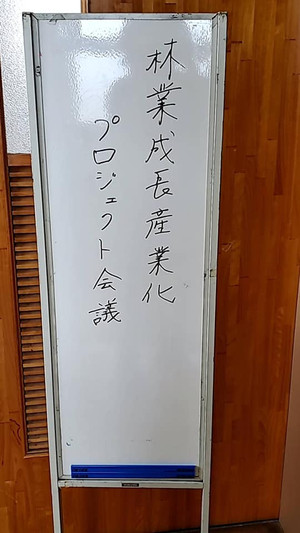 林業成長産業化
プロジェクト会議